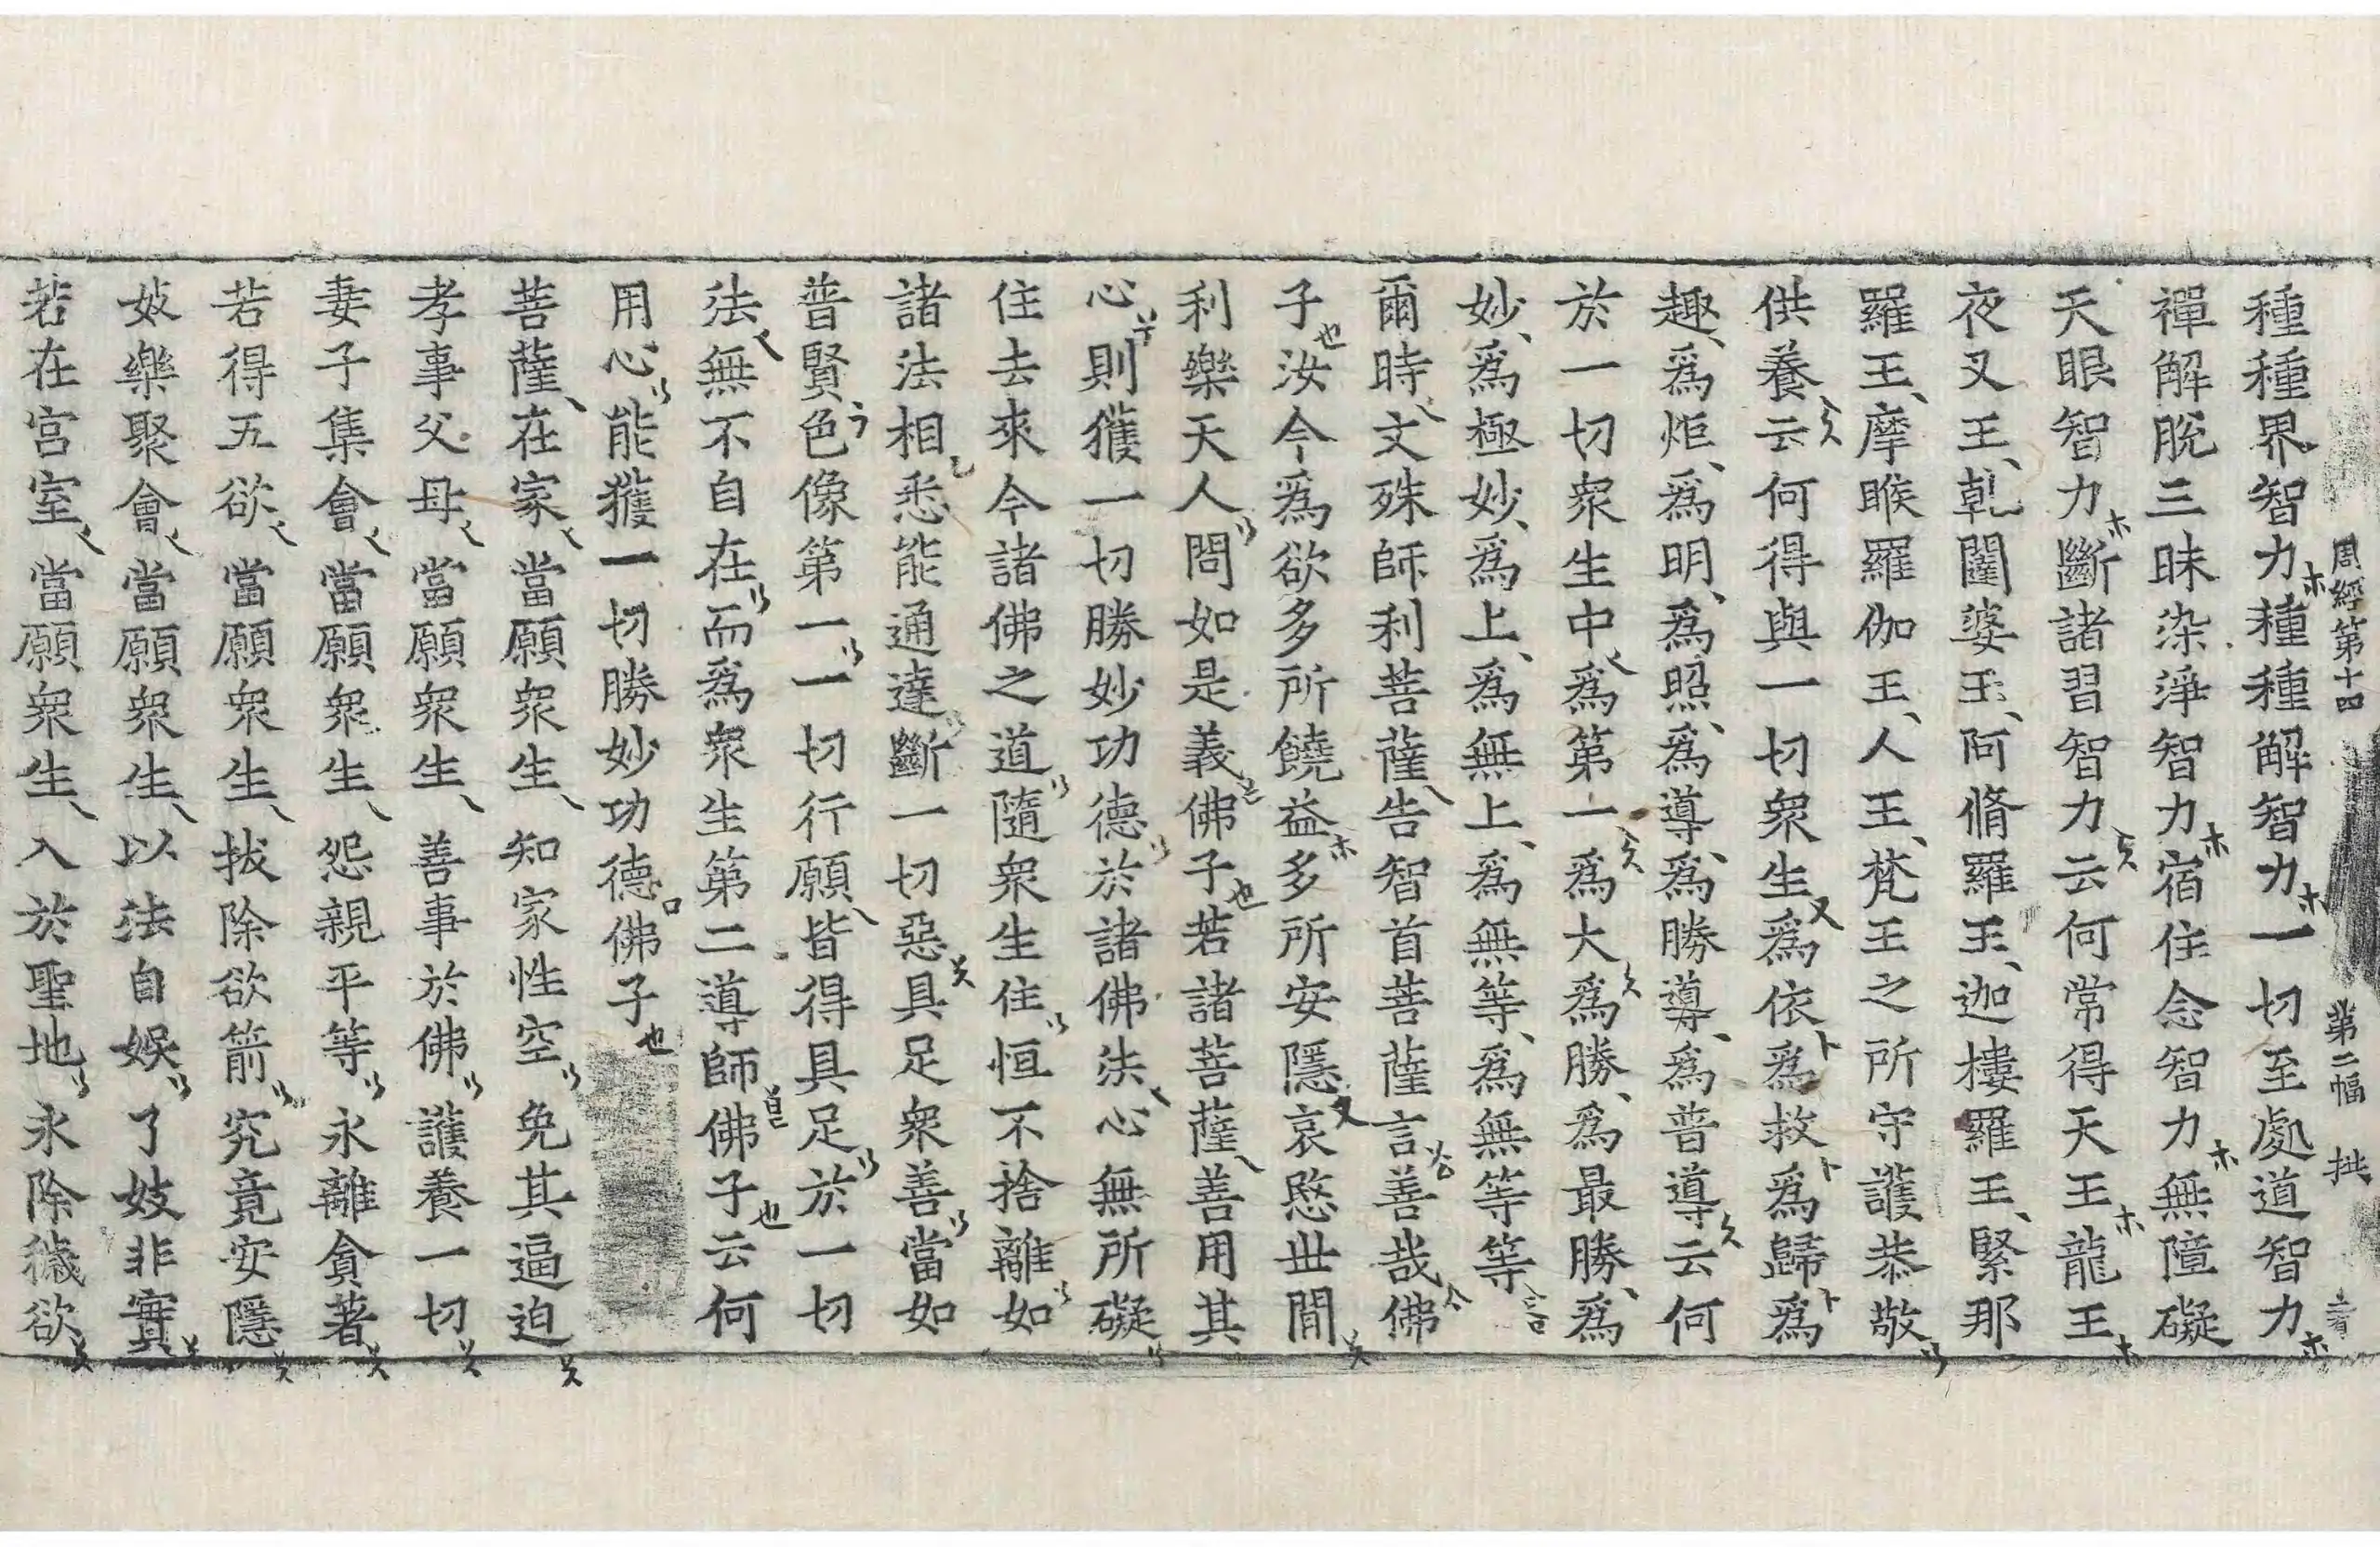 周經第十四 第二幅 拱
種種界智力種種解智力一切至處道智力
禪解脫三昧染淨智力宿住念智力無障礙
天眼智力斷諸習智力云何常得天王龍王
夜叉王乹闥婆王阿脩羅王迦樓羅王緊那
羅王摩睺羅伽王人王梵王之所守護恭敬
供養云何得與一切衆生爲依爲救爲歸爲
趣爲炬爲明爲照爲導爲勝導爲普導云何
於一切衆生中爲第一爲大爲勝爲最勝爲
妙爲極妙爲上爲無上爲無等爲無等等
爾時文殊師利菩薩告智首菩薩言善哉佛
子汝今爲欲多所饒益多所安隱哀愍世間
利樂天人問如是義佛子若諸菩薩善用其
心則獲一切勝妙功德於諸佛法心無所礙
住去來今諸佛之道隨衆生住恒不捨離如
諸法相悉能通達斷一切惡具足衆善當如
普賢色像第一一切行願皆得具足於一切
法無不自在而爲衆生第二導師佛子云何
用心能獲一切勝妙功德佛子
菩薩在家 當願衆生 知家性空 免其逼迫
孝事父母 當願衆生 善事於佛 護養一切
妻子集會 當願衆生 怨親平等 永離貪著
若得五欲 當願衆生 拔除欲箭 究竟安隱
妓樂聚會 當願衆生 以法自娛 了妓非實
若在宮室 當願衆生 入於聖地 永除穢欲